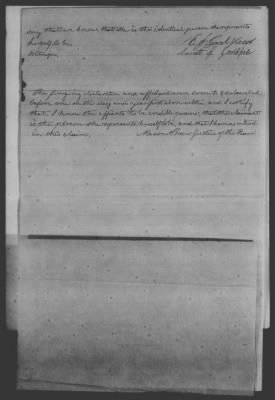 say that we know that she is the identical person she represents
herself to be
Witness
The foregoing declaration and affidavit were sworn to & subscribed
before me on the day and year first above written, and I certify
that I know the affiants to be credible persons, that the claimant
is the person she represents herself to be, and that I have no interest
in this claim.
Justice of the Peace